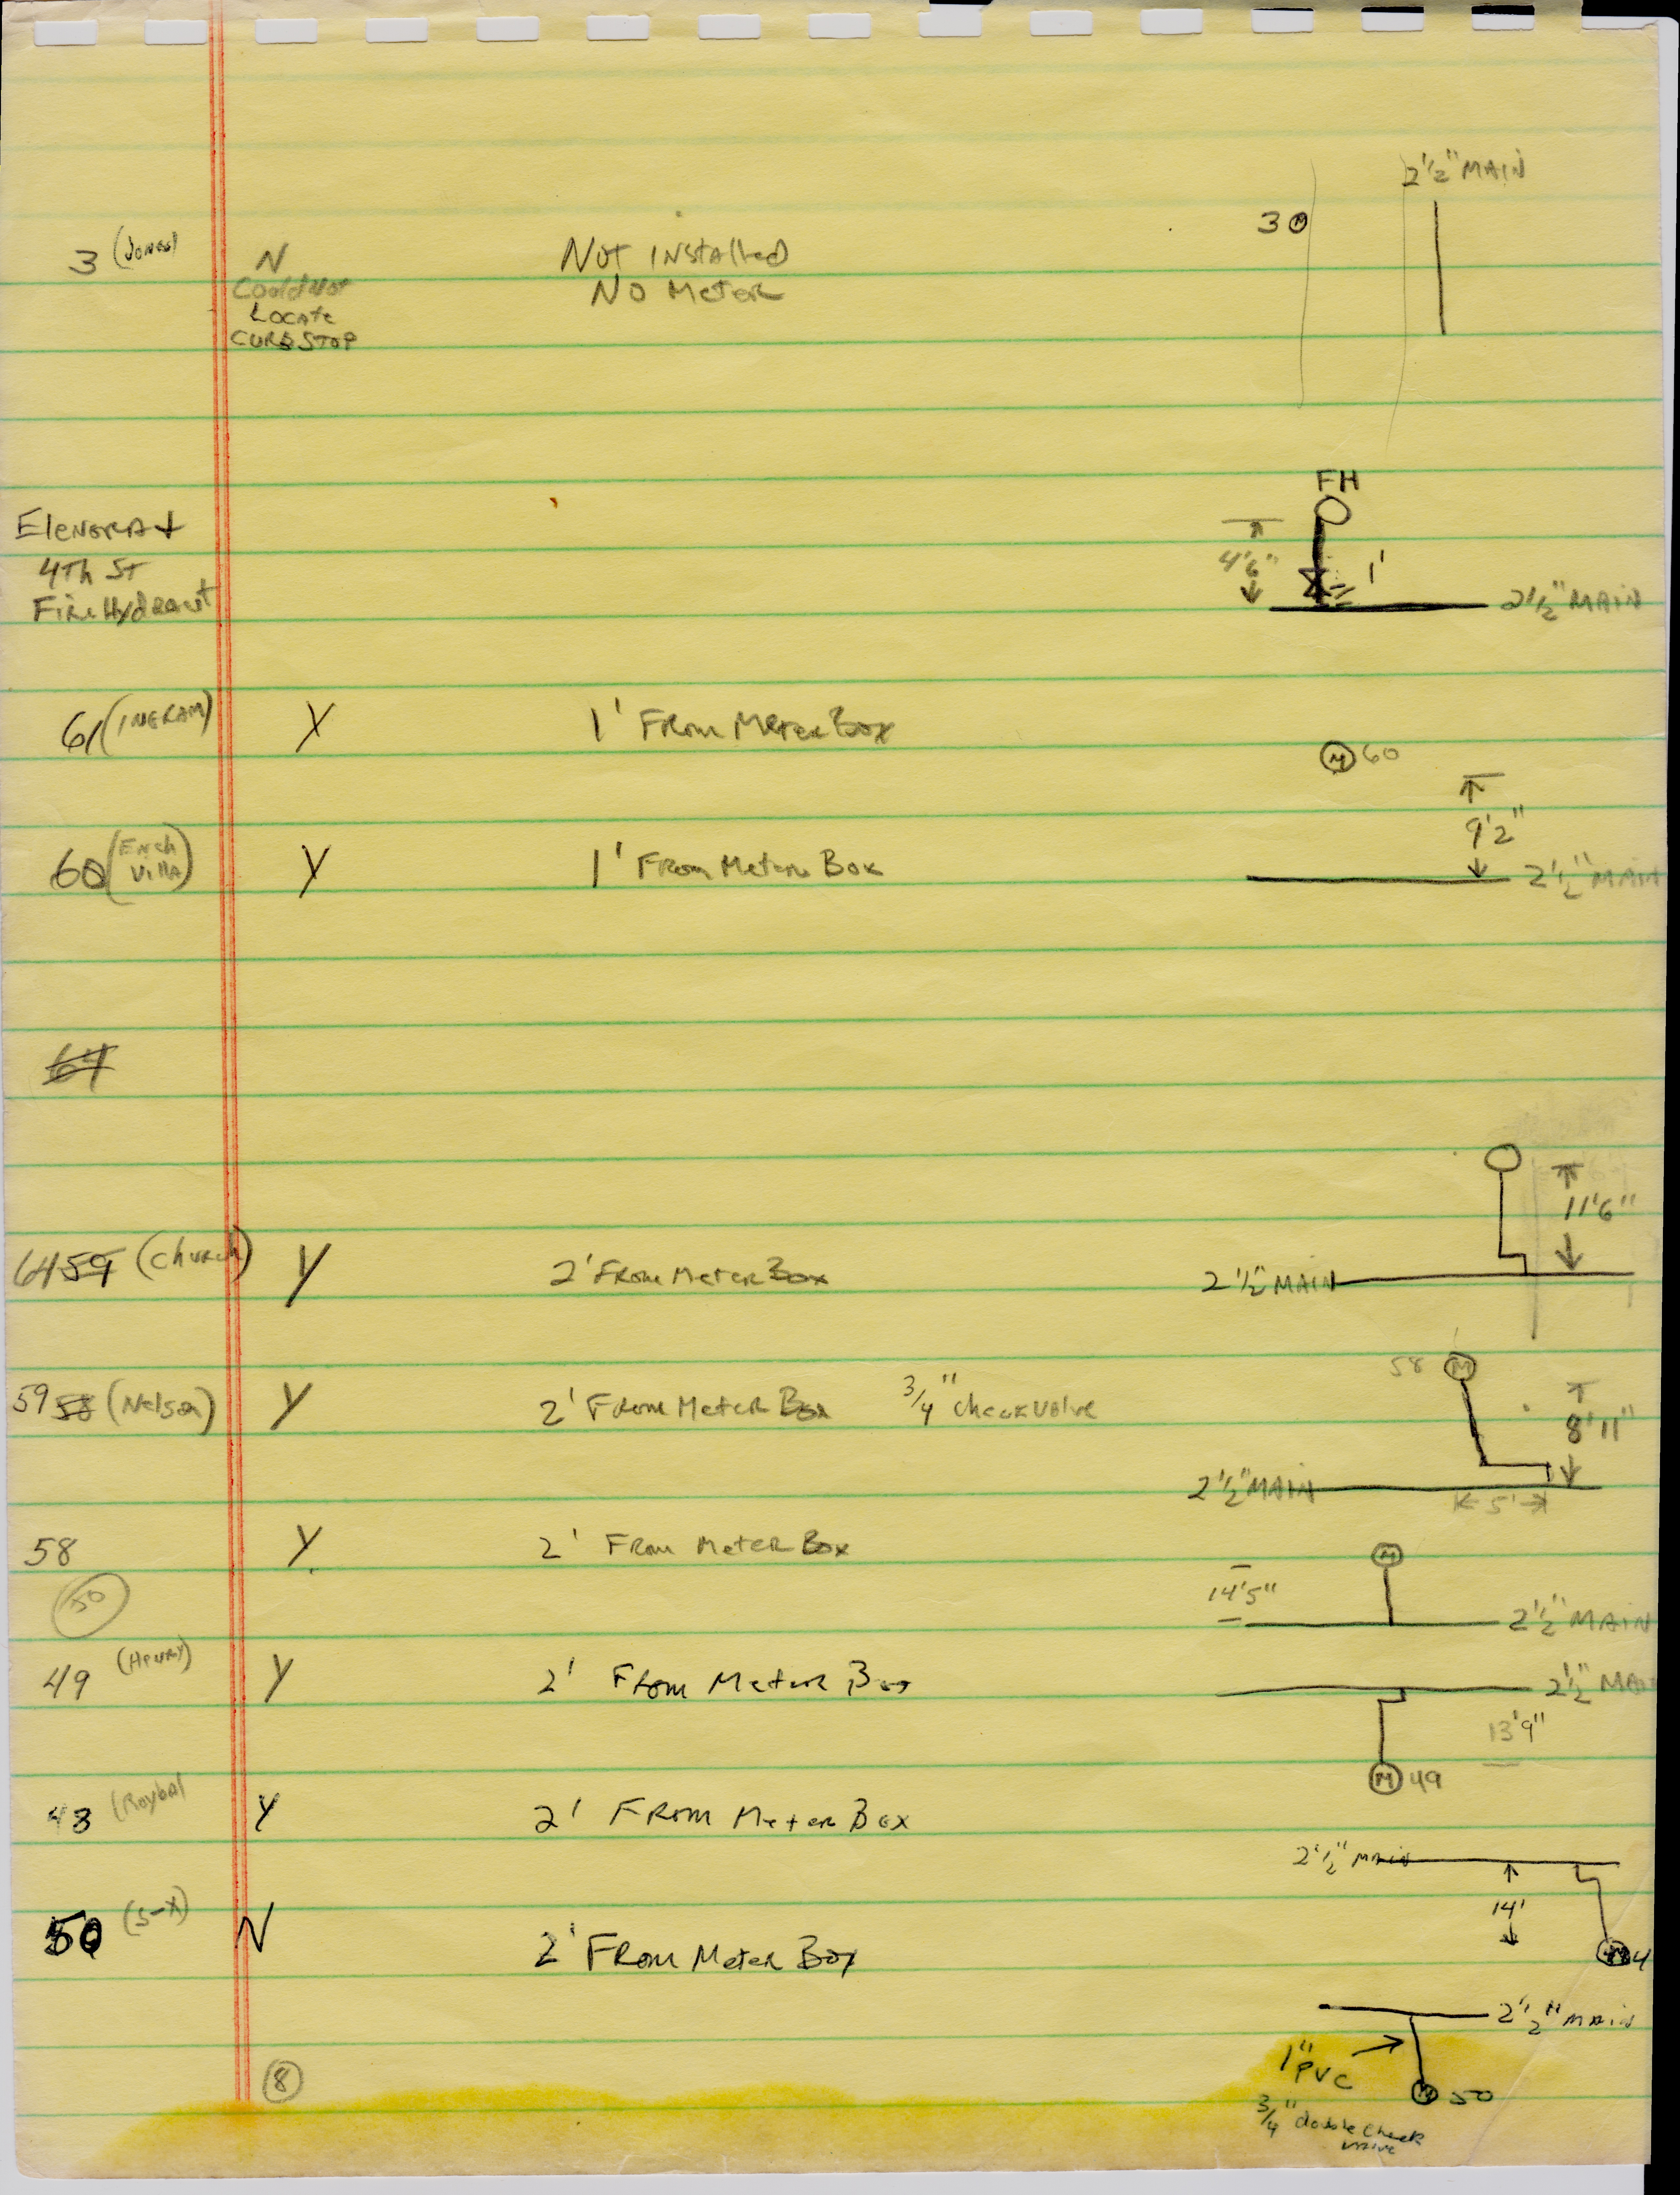 2 1/2" MAIN
3 M
3 (Jones) N Not Installed
Could Not No Meter
Locate
CURB STOP
FH
Elenora +
4Th ST 4'6" 1'
Fire Hydrant 2 1/2" MAIN
61 (INGRAM) Y 1' From Meter Box
M 60
9'2"
60 (Ench Villa) Y 1' From Meter Box 2 1/2" MAIN
64
11'6"
64 59 (Church) Y 2' From Meter Box 2 1/2" MAIN
58 M
59 58 (Nelson) Y 2' From Meter Box 3/4" check valve 8'11"
2 1/2" MAIN 5'
58 Y 2' From Meter Box M
50 14'5" 2 1/2" MAIN
49 (Henry) Y 2' From Meter Box 2 1/2" MAIN
13'9"
M 49
48 (Roybal Y 2' From Meter Box
2 1/2" MAIN
14'
50 (S-X) N 2' From Meter Box M 4
2 1/2" MAIN
1" PVC
8 M 50
3/4" double check
valve